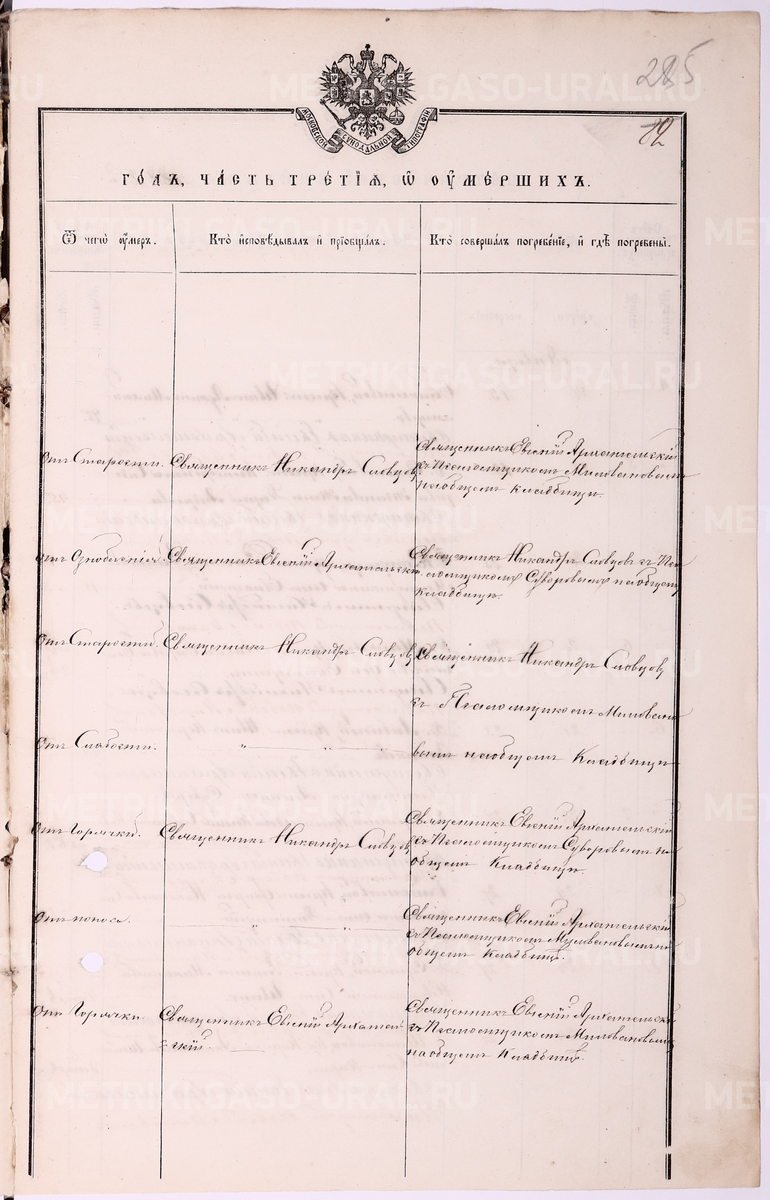 285
12
МОСКОВСКОЙ СѴНОДАЛЬНОЙ ТИПОГРАФІИ
ГО́ДЪ, ЧА́СТЬ ТРЕ́ТІѦ, Ѽ ОУ҆МЕ́РШИХЪ.
Ѿ чегѡ̀ оу҆́меръ.
Кто̀ и҆сповѣ́дывалъ и҆ прїѡбща́лъ.
Кто̀ соверша́лъ погребе́нїе, и҆ гдѣ̀ погребены̀.
Отъ Старости.
Священникъ Никандръ Словцовъ
Священникъ Евгеній Архангельскій
съ Псаломщикомъ Миловановымъ
на общемъ кладбищѣ.
отъ Ознобленія.
Священникъ Евгеній Архангельскій
Священникъ Никандръ Словцовъ съ Пса-
ломщикомъ Суворовымъ на общемъ
кладбищѣ.
Отъ Старости.
Священникъ Никандръ Словцовъ
Священникъ Никандръ Словцовъ
съ Псаломщикомъ Миловано-
вымъ на общемъ Кладбищѣ
Отъ Слабости.
" " " "
Отъ Горячки.
Священникъ Никандръ Словцовъ
Священникъ Евгеній Архангельскій
съ Псаломщикомъ Суворовымъ на
общемъ Кладбищѣ.
Отъ поноса.
" "
Священникъ Евгеній Архангельскій
съ Псаломщикомъ Миловановымъ на
общемъ Кладбищѣ.
Отъ Горячки.
Священникъ Евгеній Архангель-
скій.
Священникъ Евгеній Архангельскій
съ Псаломщикомъ Миловановымъ
на общемъ Кладбищѣ.
METRIKI.GASO-URAL.RU